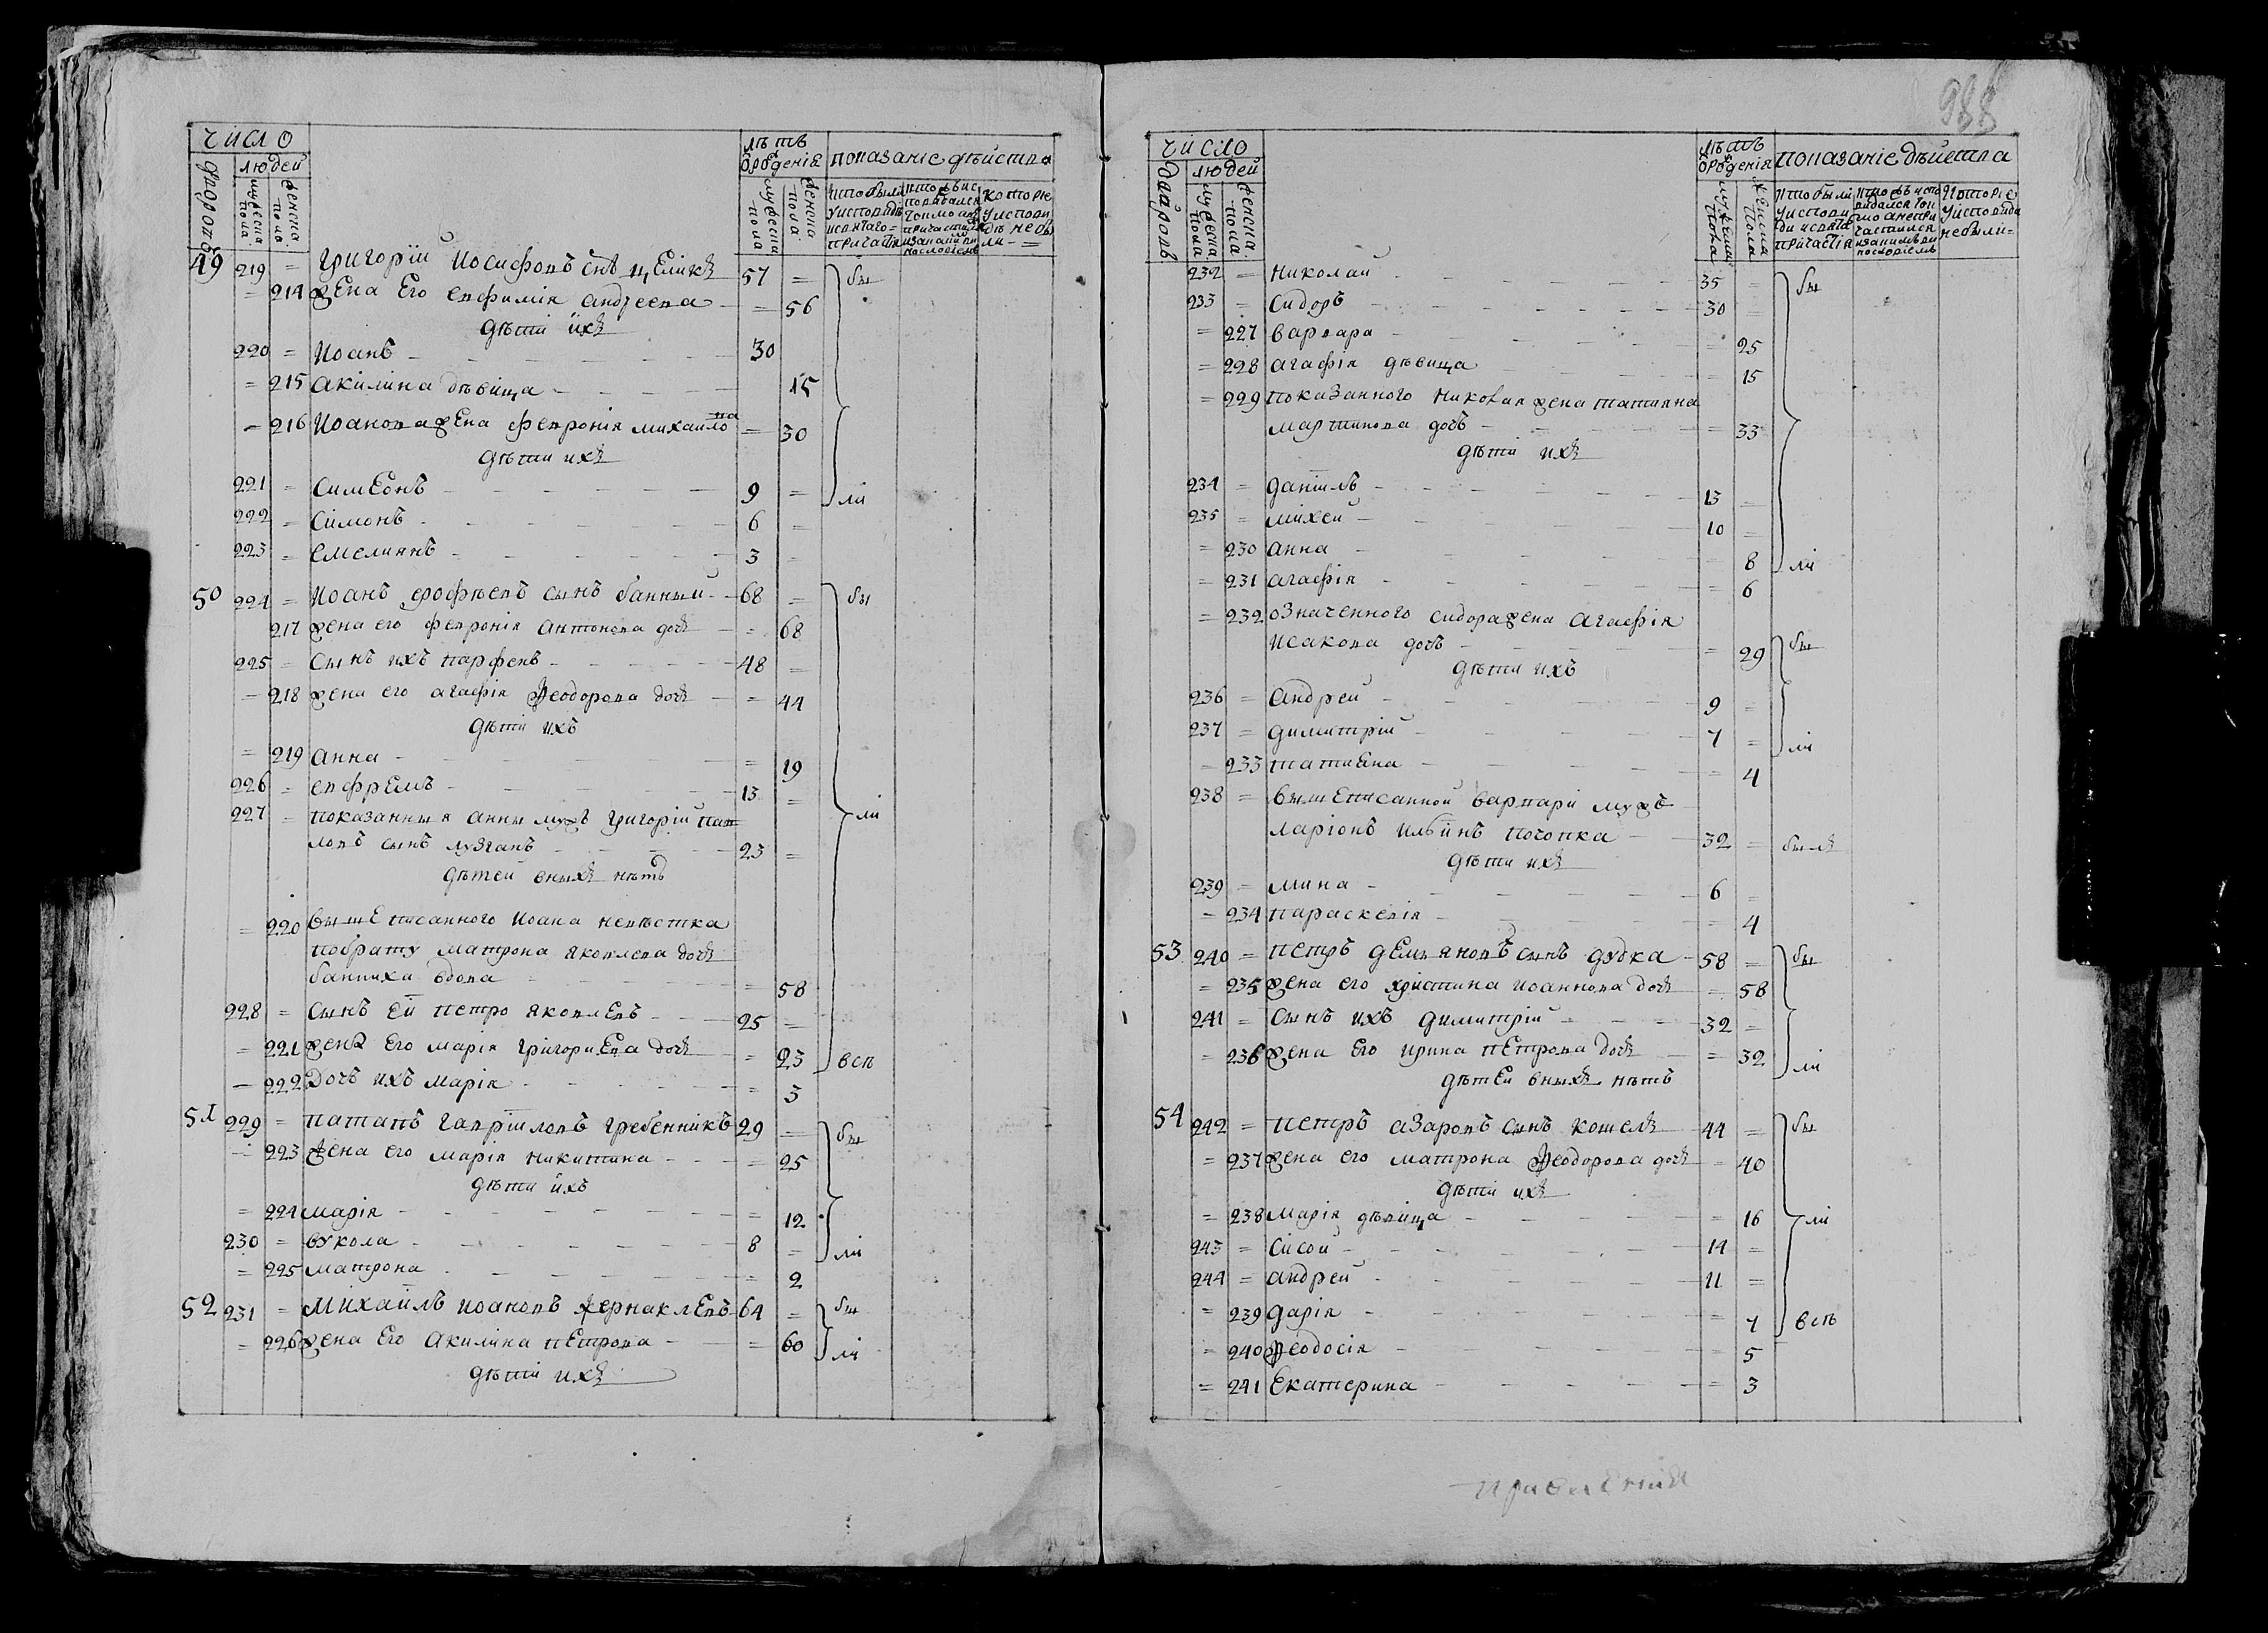 988
число
дворовъ
людей
мужеска пола
женска пола
лѣтъ ѿ рожденія
мужеска пола
женска пола
показаніе дѣиства
49 219 = григорїи иосифовъ сн҃ъ 57 = бы
= 214 жена его евфимия андреева = 56
дѣти ихъ
220 = иоанъ 30
= 215 акилина дѣвица 15
= 216 иоанова жена феврониа михаилова = 30
дѣти ихъ
221 = симеонъ 9 = ли
222 = симонъ 6 =
223 = емелиянъ 3 =
50 224 = иоанъ ерофѣевъ сынъ банныи 68 = бы
217 жена его феврония антонова дочъ = 68
225 = сынъ ихъ парфенъ 48 =
= 218 жена его агафия феодорова дочъ = 44
дѣти ихъ
= 219 анна = 19
226 = ефремъ 13 =
227 = показанныя анны мужъ григорїи пав ли
ловъ сынъ лузганъ 23 =
дѣтеи оныхъ нѣтъ
= 220 вышеписанного иоана невѣстка
побрату матрона яковлева дочъ
банниха вдова = 58
228 = сынъ еи петро яковлевъ 25 =
= 221 жена его мария григориева дочъ = 23 всѣ
= 222 дочъ ихъ мария = 3
51 229 = патапъ гаврїиловъ гребенникъ 29 = бы
= 223 жена его мария никитина = 25
дѣти ихъ
= 224 мария = 12
230 = вукола 8 = ли
= 225 матрона = 2
52 231 = михаилъ иоановъ 64 = бы
= 226 жена его акилина петрова = 60 ли
дѣти ихъ
число
дворовъ
людей
мужеска пола
женска пола
лѣтъ ѿ рожденія
мужеска пола
женска пола
показаніе дѣиства
232 = николаи 35 = бы
233 = сидоръ 30 =
= 227 варвара = 25
= 228 агафия дѣвица = 15
= 229 показанного николая жена татияна
мартинова дочъ = 33
дѣти ихъ
234 = данїилъ 13 =
235 = михеи 10 =
= 230 анна = 8 ли
= 231 агафия = 6
= 232 означенного сидора жена агафия
исакова дочъ = 29 бы
дѣти ихъ
236 = андреи 9 =
237 = димитрїи 7 = ли
= 233 татиана = 4
238 = вышеписанной варвари мужъ
ларіонъ ильинъ почопка 32 = былъ
дѣти ихъ
239 = мина 6 =
= 234 параскевия = 4
53 240 = петръ демьяновъ сынъ дудка 58 = бы
= 235 жена его христина иоаннова дочъ = 58
241 = сынъ ихъ димитрїи 32 =
= 236 жена его ирина петрова дочъ = 32 ли
дѣтеи оныхъ нѣтъ
54 242 = петръ азаровъ сынъ кошель 44 = бы
= 237 жена его матрона феодорова дочъ = 40
дѣти ихъ
= 238 мария дѣвица = 16 ли
243 = сисои 14 =
244 = андреи 11 =
= 239 дария = 7 всѣ
= 240 феодосия = 5
= 241 екатерина = 3